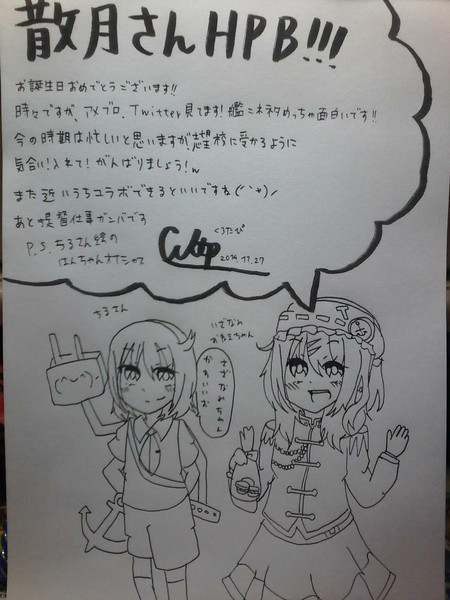 散月さん HPB!!!
お誕生日おめでとうございます!!
時々ですが、アメブロ、Twitter見てます!艦これネタめっちゃ面白いです!!
今の時期は忙しいと思いますが志望校に受かるように
気合い!入れて!がんばりましょう!w
また近いうちコラボできるといいですね(*´`*)ノ
あと提督仕事ガンバです
P.S. ちるさん絵の
はんちゃん
くろたぴ
2014.11.27
ちるさん
いざなみ
ちゃん
いざなみちゃん
かわいいお